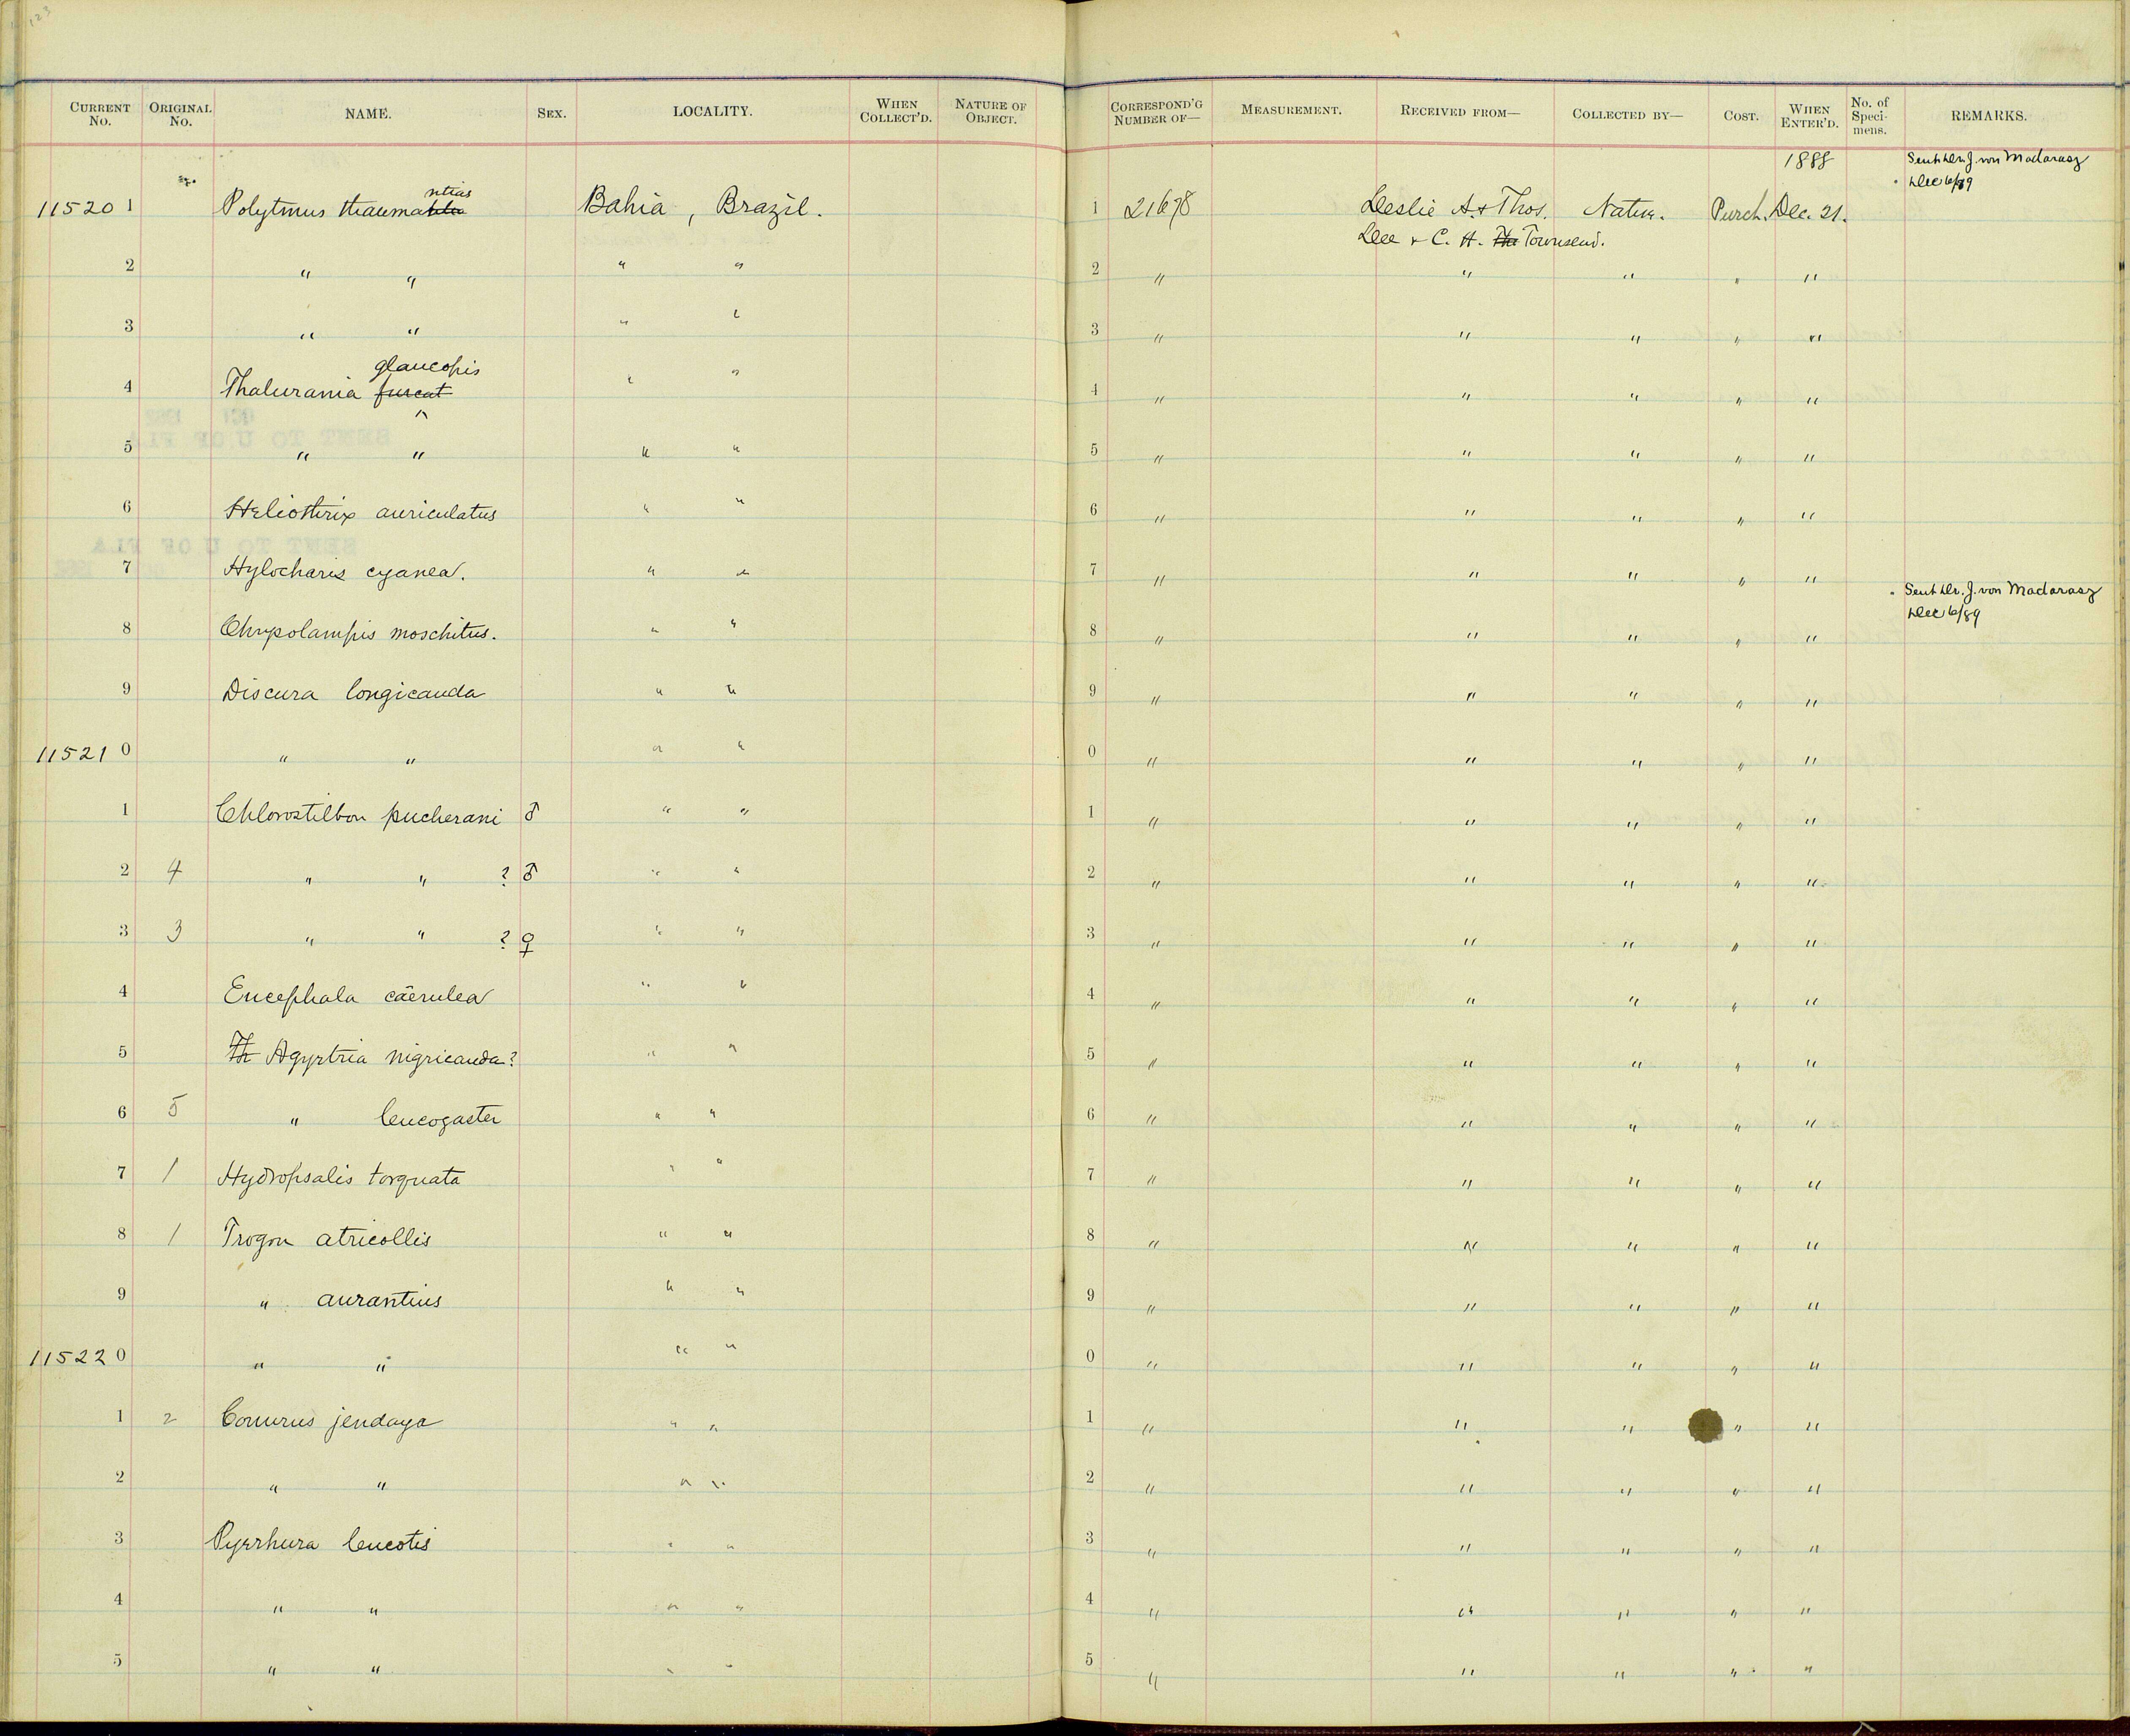 123
CURRENT No. ORIGINAL No. NAME. SEX. LOCALITY. WHEN COLLECT'D. NATURE OF OBJECT. CORRESPOND'G NUMBER OF— MEASUREMENT. RECEIVED FROM— COLLECTED BY— COST. WHEN ENTER'D. No. of Speci-mens. REMARKS.
1888 Sent Dr. J. von Madarasz
Dec 6/89
115201 Polytmus thaumantias Bahia, Brazil. 1 21678 Leslie A. & Thos. Native. Purch. Dec. 21.
Lee & C. H. Townsend.
2 " " " " 2 " " " " "
3 " " " " 3 " " " " "
glaucopis
4 Thalurania furcat " " 4 " " " " "
5 " " " " 5 " " " " "
6 Heliothrix auriculatus " " 6 " " " " "
7 Hylocharis cyanea. " " 7 " " " " "
Sent Dr. J. von Madarasz
Dec 6/89
8 Chrysolampis moschitus. " " 8 " " " " "
9 Discura longicauda " " 9 " " " " "
115210 " " " " 0 " " " " "
1 Chlorostilbon pucherani ♂ " " 1 " " " " "
2 4 " " ? ♂ " " 2 " " " " "
3 3 " " ? ♀ " " 3 " " " " "
4 Eucephala cærulea " " 4 " " " " "
5 Th Agyrtria nigricauda? " " 5 " " " " "
6 5 " leucogaster " " 6 " " " " "
7 1 Hydropsalis torquata " " 7 " " " " "
8 1 Trogon atricollis " " 8 " " " " "
9 " aurantius " " 9 " " " " "
115220 " " " " 0 " " " " "
1 2 Conurus jendaya " " 1 " " " " "
2 " " " " 2 " " " " "
3 Pyrrhura leucotis " " 3 " " " " "
4 " " " " 4 " " " " "
5 " " " " 5 " " " " "